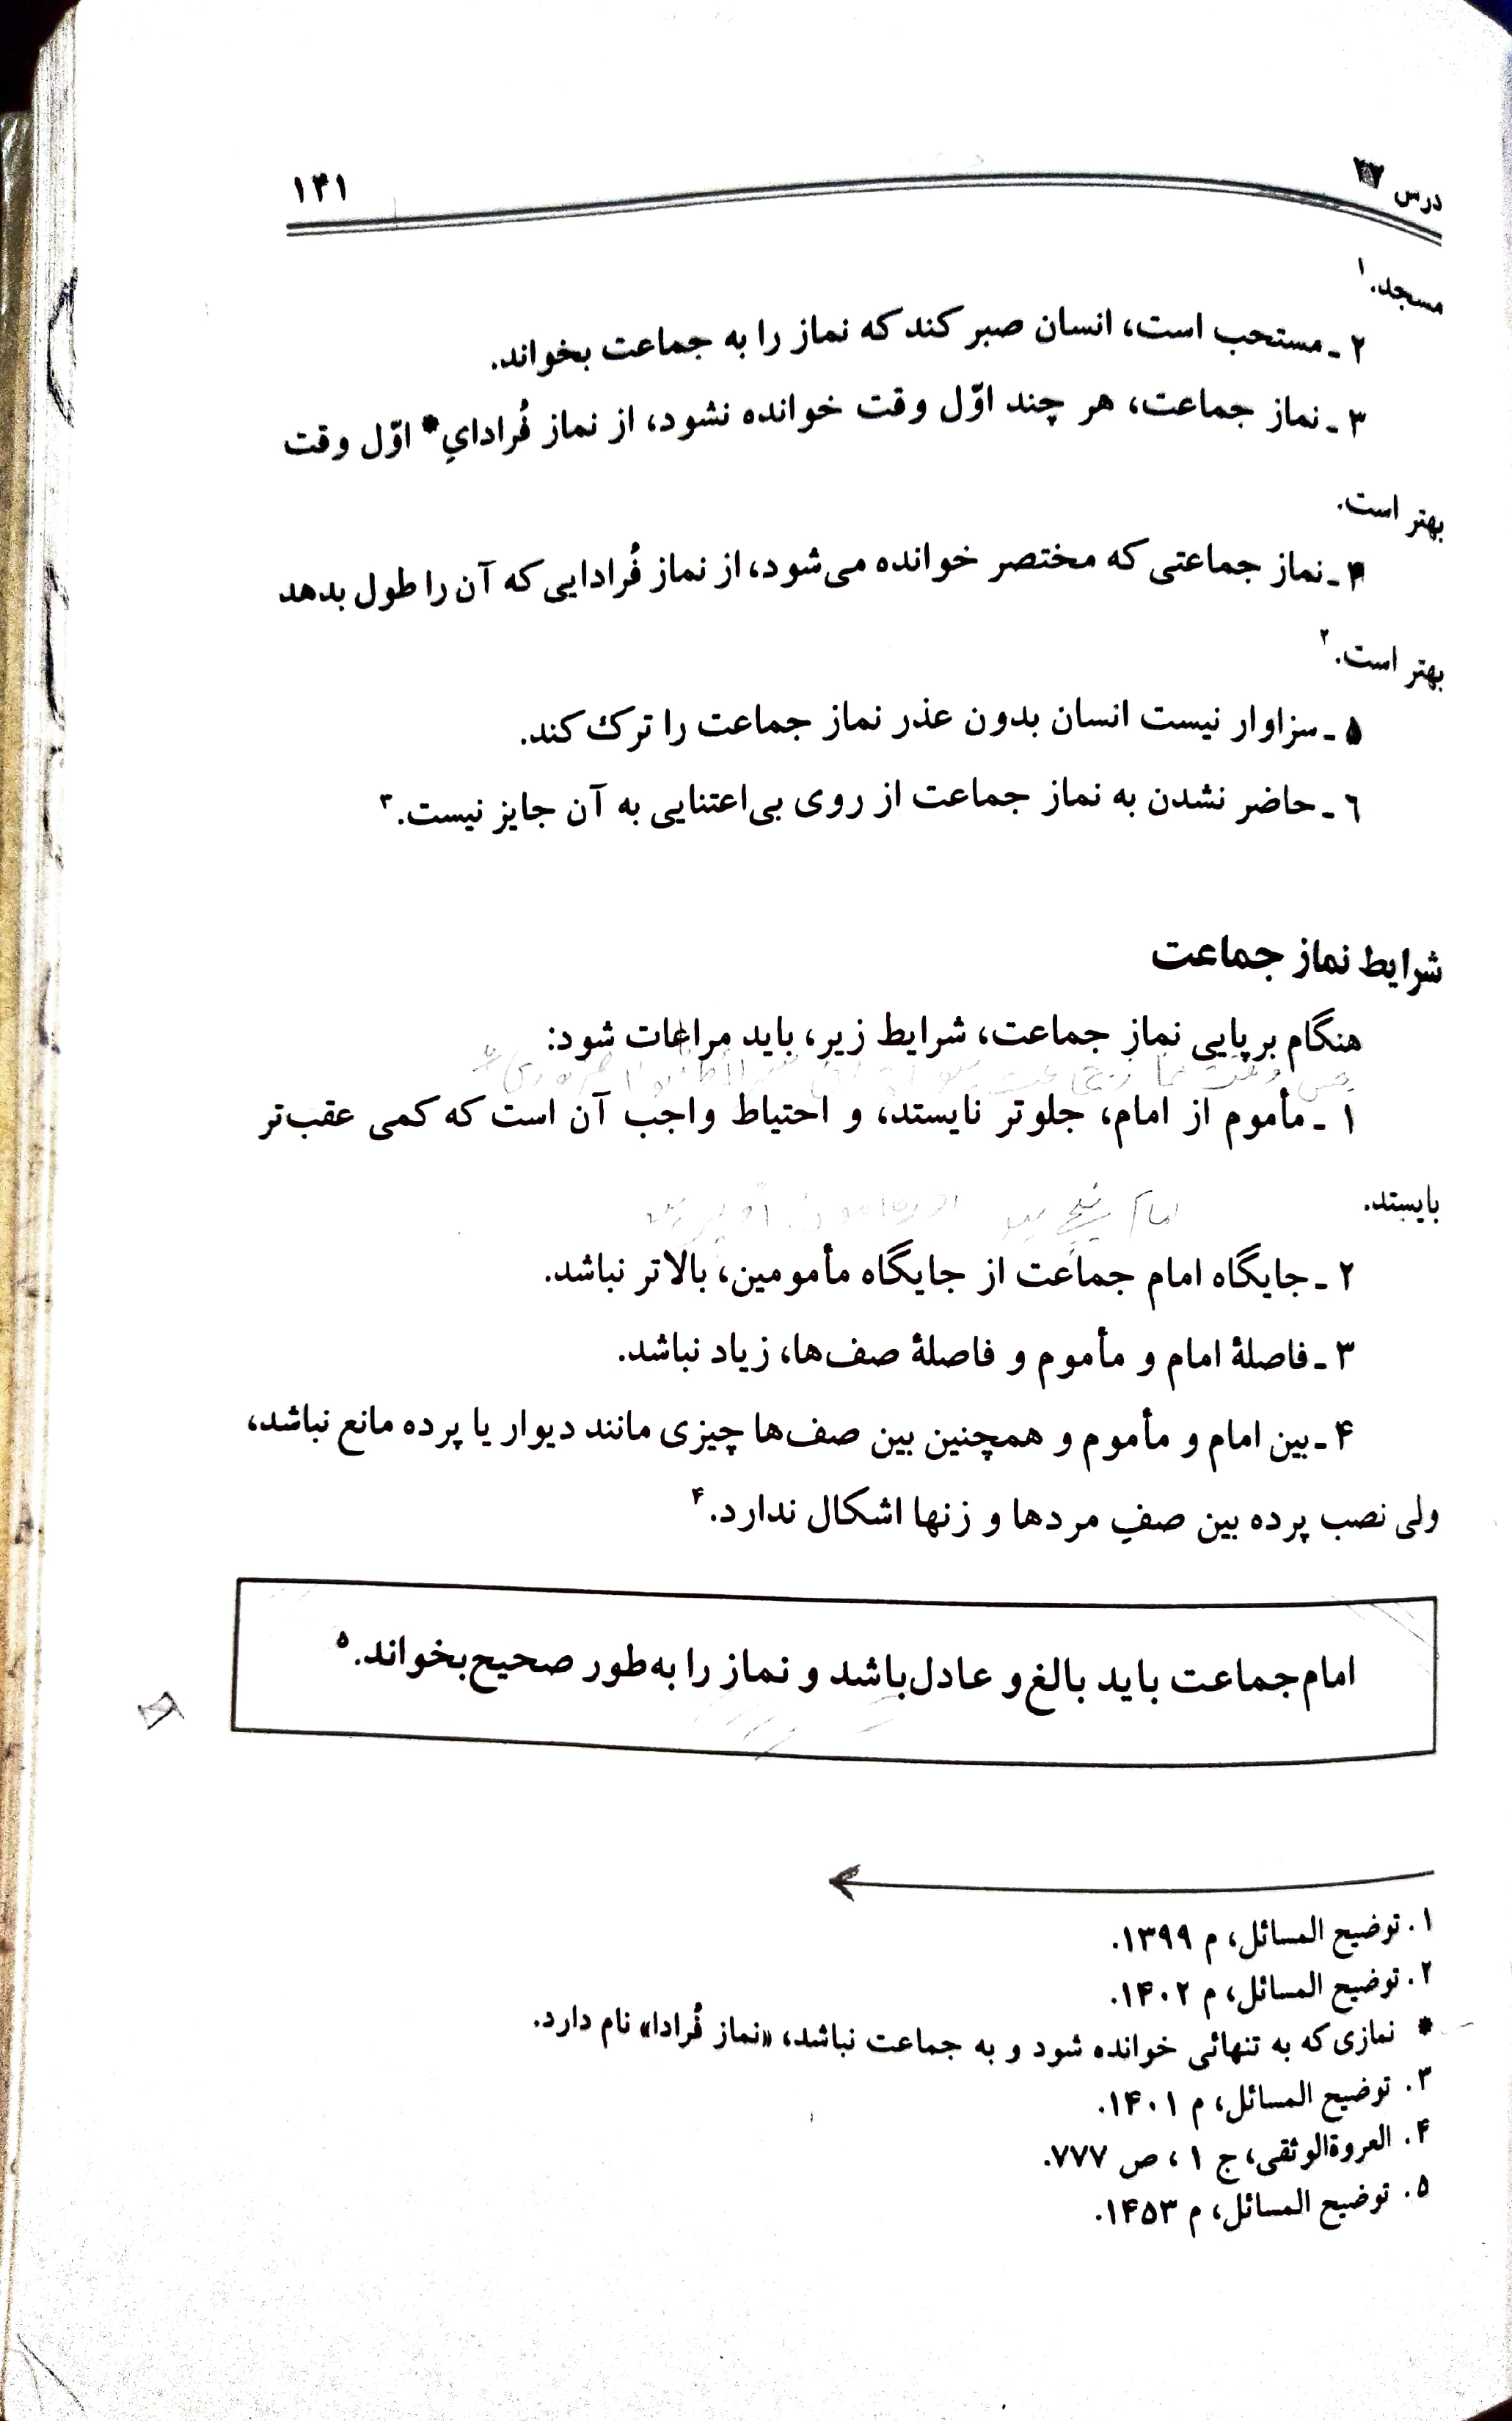 درس ۲۷
۱۴۱
مسجد.۱
۲ ـ مستحب است، انسان صبر کند که نماز را به جماعت بخواند.
۳ ـ نماز جماعت، هر چند اوّل وقت خوانده نشود، از نماز فُرادایِ* اوّل وقت
بهتر است.
۴ ـ نماز جماعتی که مختصر خوانده می‌شود، از نماز فُرادایی که آن را طول بدهد
بهتر است.۲
۵ ـ سزاوار نیست انسان بدون عذر نماز جماعت را ترک کند.
۶ ـ حاضر نشدن به نماز جماعت از روی بی‌اعتنایی به آن جایز نیست.۳
شرایط نماز جماعت
هنگام برپایی نمازِ جماعت، شرایط زیر، باید مراعات شود:
۱ ـ مأموم از امام، جلوتر نایستد، و احتیاط واجب آن است که کمی عقب‌تر
بایستد.
امام
۲ ـ جایگاه امام جماعت از جایگاه مأمومین، بالاتر نباشد.
۳ ـ فاصلهٔ امام و مأموم و فاصلهٔ صف‌ها، زیاد نباشد.
۴ ـ بین امام و مأموم و همچنین بین صف‌ها چیزی مانند دیوار یا پرده مانع نباشد،
ولی نصب پرده بین صفِ مردها و زنها اشکال ندارد.۴
امام جماعت باید بالغ و عادل باشد و نماز را به‌طور صحیح بخواند.۵
۱. توضیح المسائل، م ۱۳۹۹.
۲. توضیح المسائل، م ۱۴۰۲.
* نمازی که به تنهائی خوانده شود و به جماعت نباشد، «نماز فُرادا» نام دارد.
۳. توضیح المسائل، م ۱۴۰۱.
۴. العروةالوثقی، ج ۱، ص ۷۷۷.
۵. توضیح المسائل، م ۱۴۵۳.